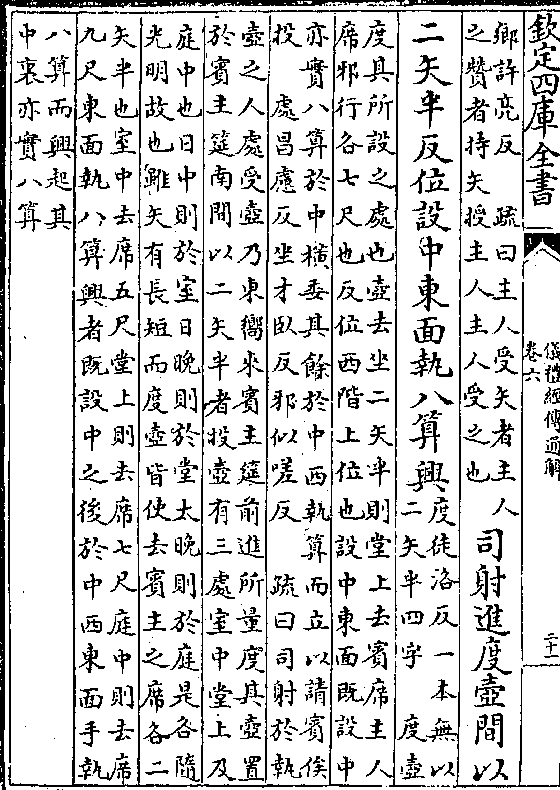 欽定四庫全書
儀禮經傳通解
卷六
二十一
鄉許亮反 疏曰主人受矢者主人
之贊者持矢授主人主人受之也
司射進度壺間以
二矢半反位設中東面執八算興
度徒洛反一本無以
二矢半四字 度壺
度其所設之處也壺去坐二矢半則堂上去賓席主人
席邪行各七尺也反位西階上位也設中東面既設中
亦實八算於中橫委其餘於中西執算而立以請賓俟
投 處昌慮反坐才臥反邪似嗟反 疏曰司射於執
壺之人處受壺乃東嚮來賓主筵前進所量度其壺置
於賓主筵南間以二矢半者投壺有三處室中堂上及
庭中也日中則於室日晚則於堂太晚則於庭是各隨
光明故也雖矢有長短而度壺皆使去賓主之席各二
矢半也室中去席五尺堂上則去席七尺庭中則去席
九尺東面執八算興者既設中之後於中西東面手執
八算而興起其
中裏亦實八算